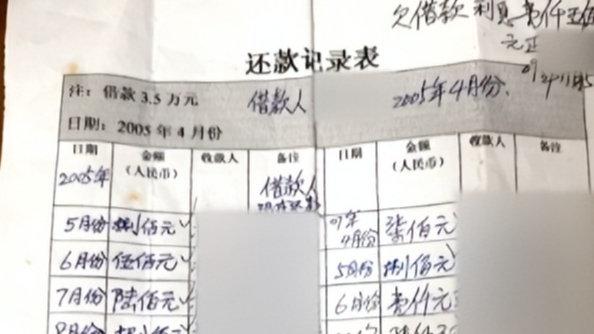 欠借款利息壹仟五佰
元正
还款记录表
注：借款 3.5 万元 借款人 2005年4月份.
日期：2005 年 4 月份
日期 金额（人民币） 收款人 备注 日期 金额（人民币） 收款人 备注
2005年 借款人
5月份 捌佰元 07年4月份 柒佰元
6月份 伍佰元 5月份 捌佰元
7月份 陆佰元 6月份 壹仟元
8月份